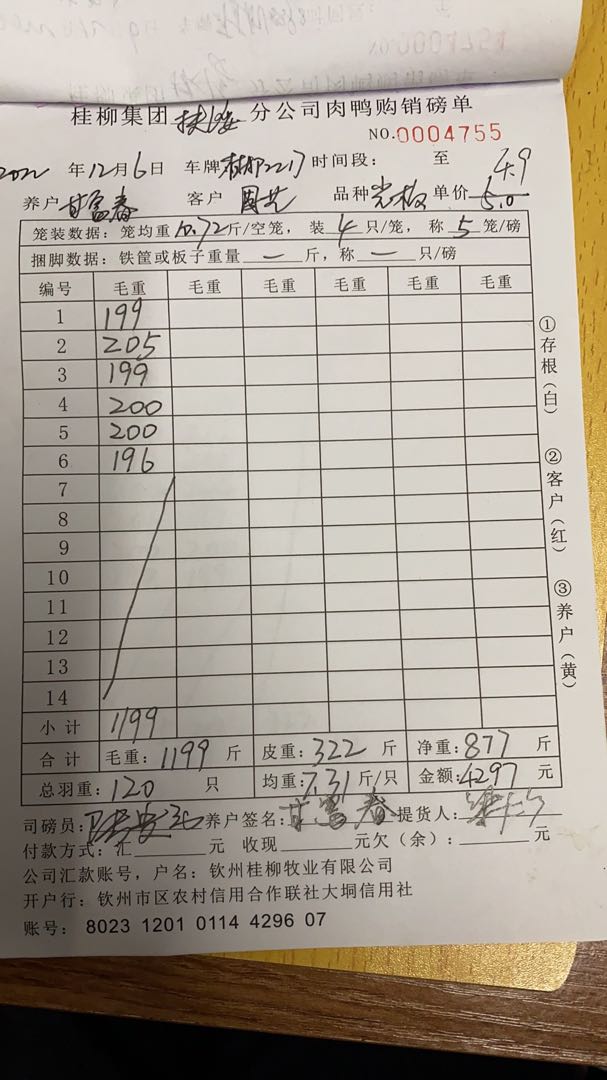 桂柳集团扶隆分公司肉鸭购销磅单
NO.0004755
2022年12月6日 车牌桂柳2217时间段： 至
4.9
养户甘富春 客户 周芑 品种光板 单价5.0
笼装数据：笼均重10.72斤/空笼，装4只/笼，称5笼/磅
捆脚数据：铁筐或板子重量一斤，称一只/磅
编号 毛重 毛重 毛重 毛重 毛重 毛重
1 199
2 205
3 199
4 200
5 200
6 196
7
8
9
10
11
12
13
14
小计 1199
合计 毛重：1199斤 皮重：322斤 净重：877斤
总羽重：120只 均重：7.31斤/只 金额：4297元
司磅员： 养户签名：甘富春 提货人：
付款方式：汇 元 收现 元欠（余）： 元
公司汇款账号，户名：钦州桂柳牧业有限公司
开户行：钦州市区农村信用合作联社大垌信用社
账号： 8023 1201 0114 4296 07
①存根（白）
②客户（红）
③养户（黄）